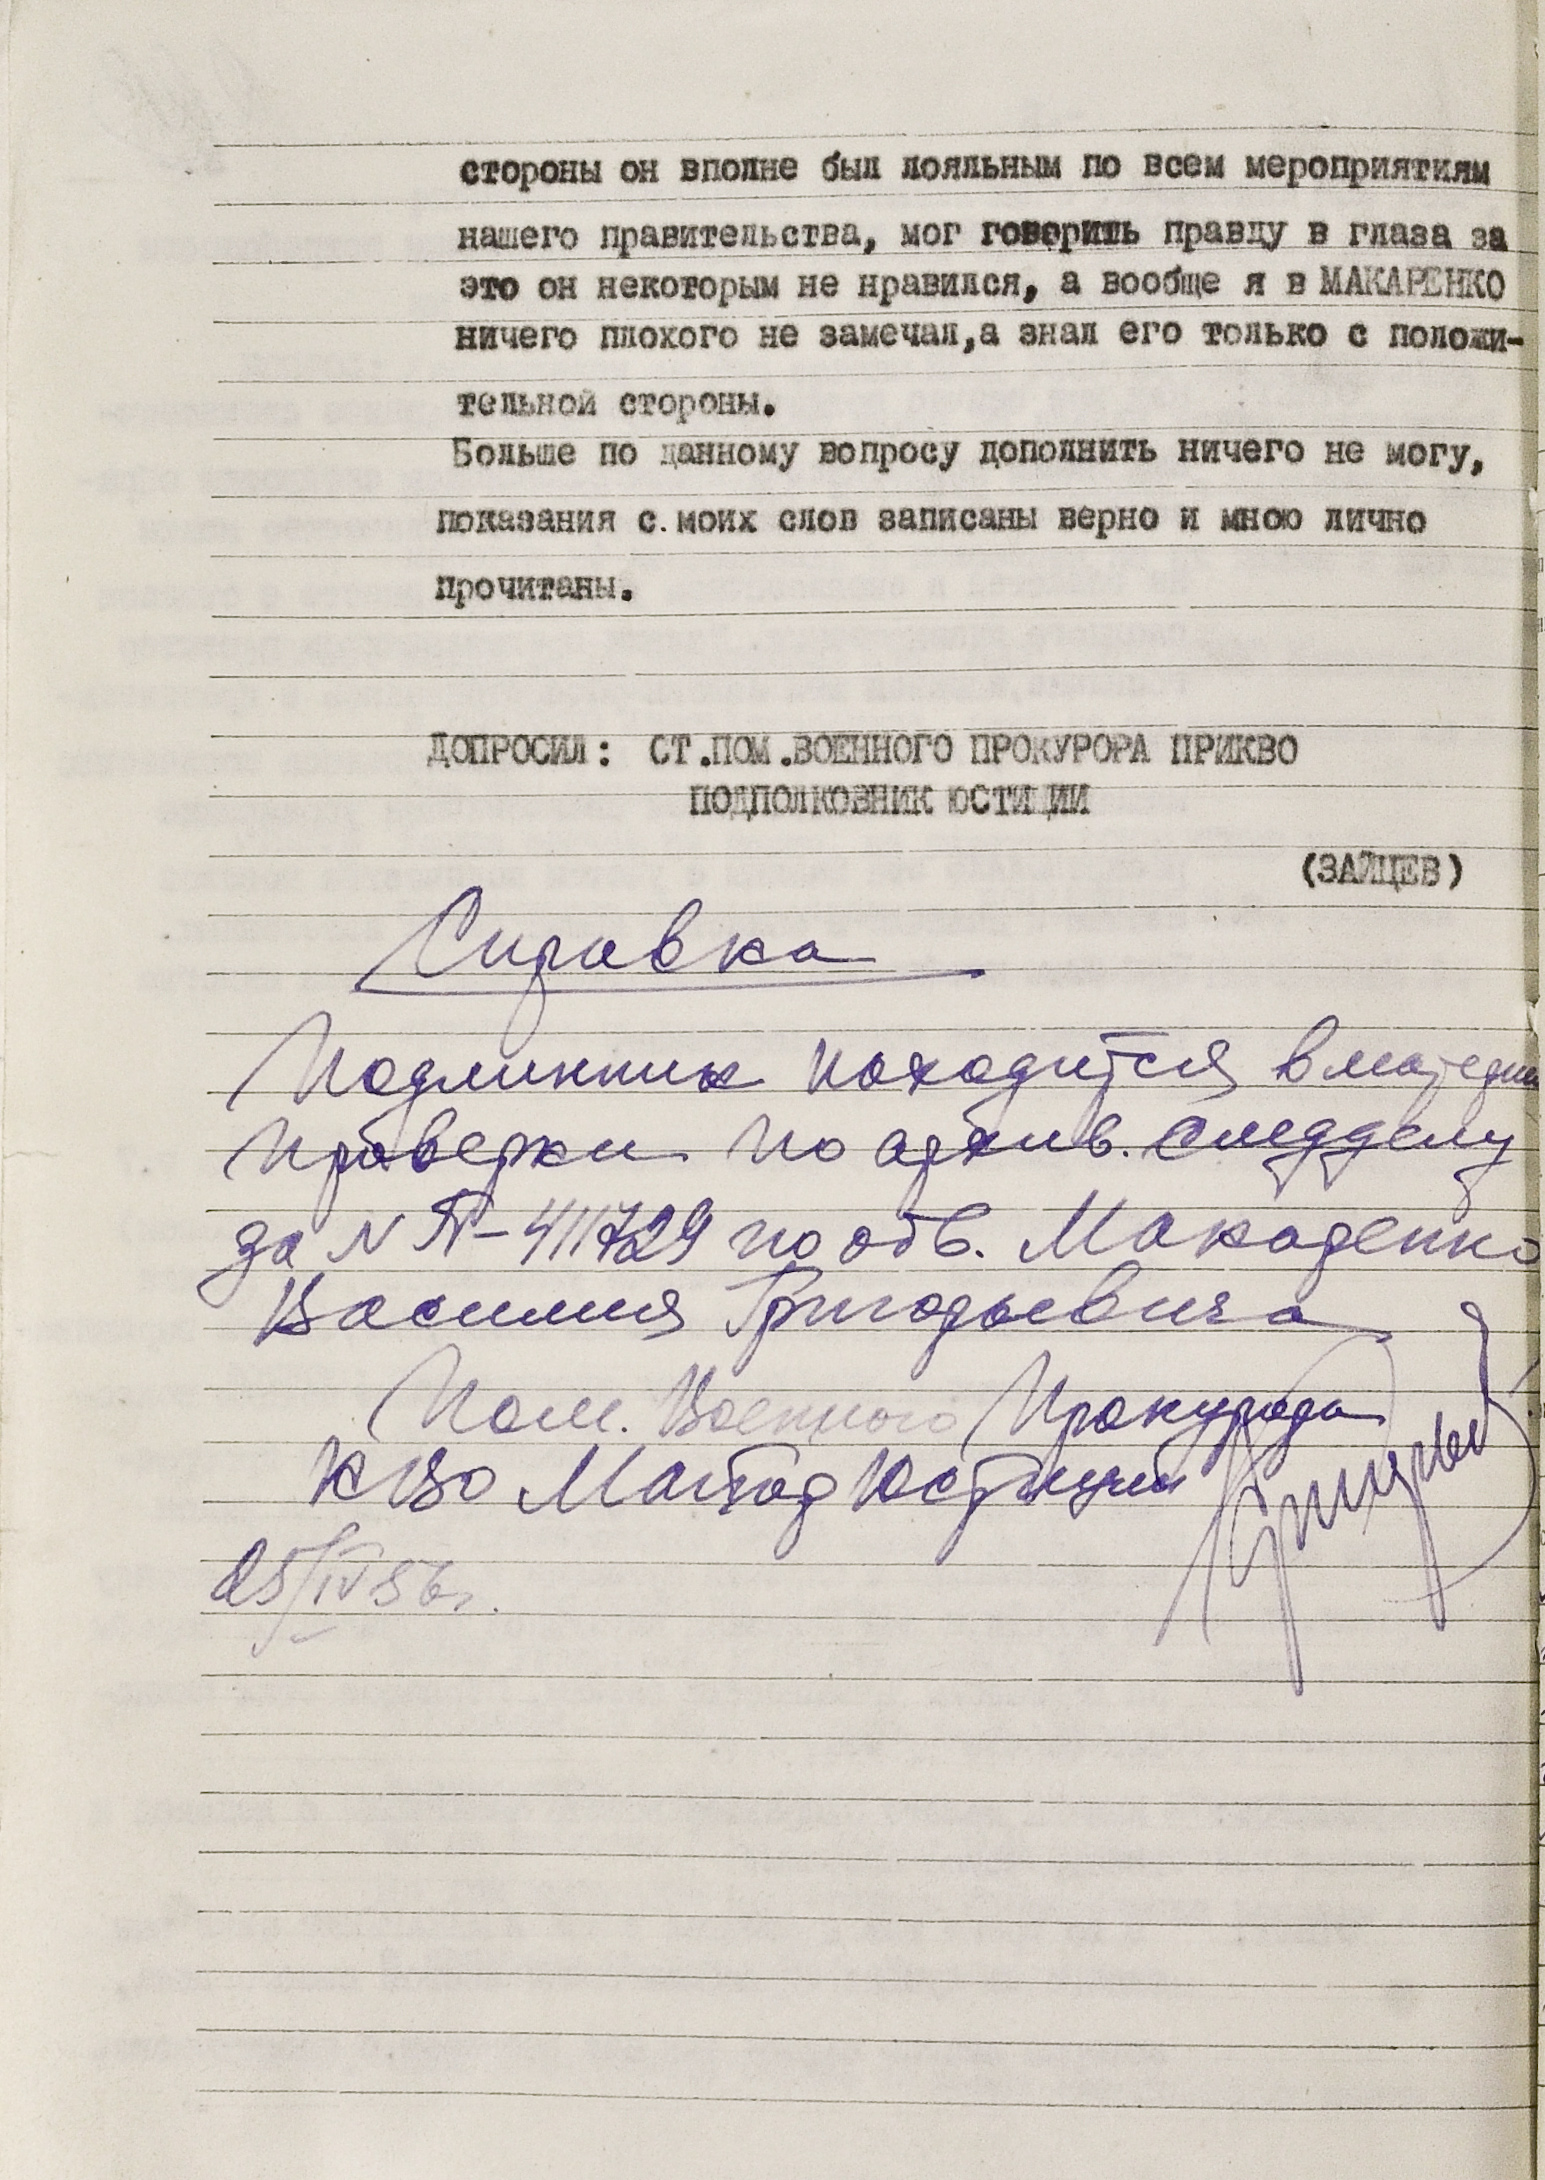 стороны он вполне был лояльным по всем мероприятиям
нашего правительства, мог говорить правду в глаза за
это он некоторым не нравился, а вообще я в МАКАРЕНКО
ничего плохого не замечал,а знал его только с положи-
тельной стороны.
Больше по данному вопросу дополнить ничего не могу,
показания с.моих слов записаны верно и мною лично
прочитаны.
ДОПРОСИЛ: СТ.ПОМ.ВОЕННОГО ПРОКУРОРА ПРИКВО
ПОДПОЛКОВНИК ЮСТИЦИИ
(ЗАЙЦЕВ)
Справка
Подлинник находится в
проверки по архив. следделу
за N П-411729 по обв. Макаренко
Василия Григорьевича
Пом. Военного Прокурора
КВО Майор Юстиции
25/IV 56г.